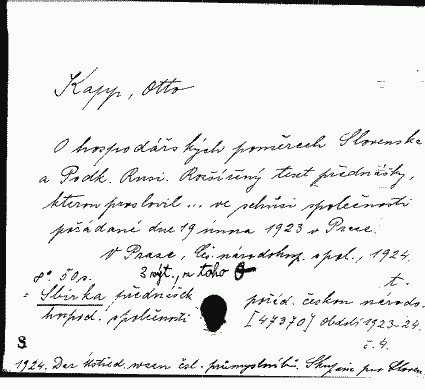 Kapp, Otto
O hospodářských poměrech Slovenska
a Podk. Rusi. Rozšířený text přednášky,
kterou proslovil ... ve schůzi společnosti
pořádané dne 19 února 1923 v Praze.
V Praze, Čs. národohosp. spol., 1924.
8°. 50 s. 3 výt., z toho
t.
= Sbírka přednášek pořád. českou národo-
hospod. společností [47370] Období 1923-24.
č. 4.
8
1924. Dar Ústřed. svazu čsl. průmyslníků. Skupina pro Sloven.